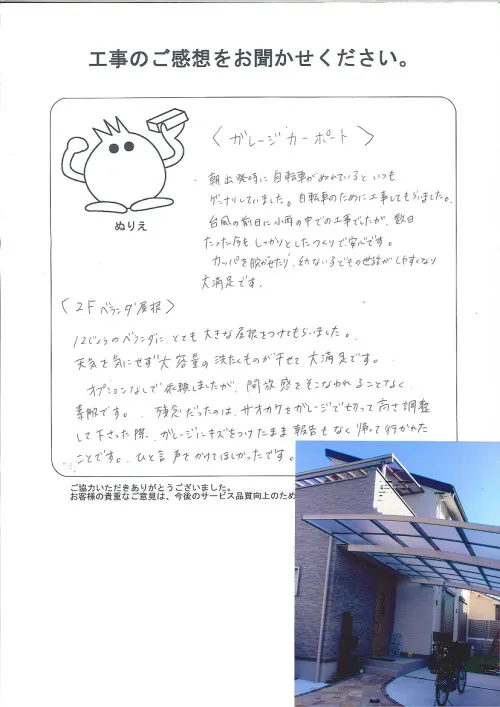 工事のご感想をお聞かせください。
ぬりえ
〈ガレージカーポート〉
朝出発時に自転車がぬれているといつも
ゲンナリしていました。自転車のために工事してもらいました。
台風の前日に小雨の中での工事でしたが、数日
たった今も しっかりとしたつくりで安心です。
カッパを脱がせたり、幼ない子どもの世話がしやすくなり
大満足です。
〈2Fベランダ屋根〉
12じょうのベランダに、とても大きな屋根をつけてもらいました。
天気を気にせず大容量の洗たくものが干せて大満足です。
オプションなしで依頼しましたが、開放感をそこなわれることなく
素敵です。残念だったのは、サオカケをガレージで切って高さ調整
して下さった際、ガレージにキズをつけたまま報告もなく帰って行かれた
ことです。ひと言声をかけてほしかったです。
ご協力いただきありがとうございました。
お客様の貴重なご意見は、今後のサービス品質向上のため